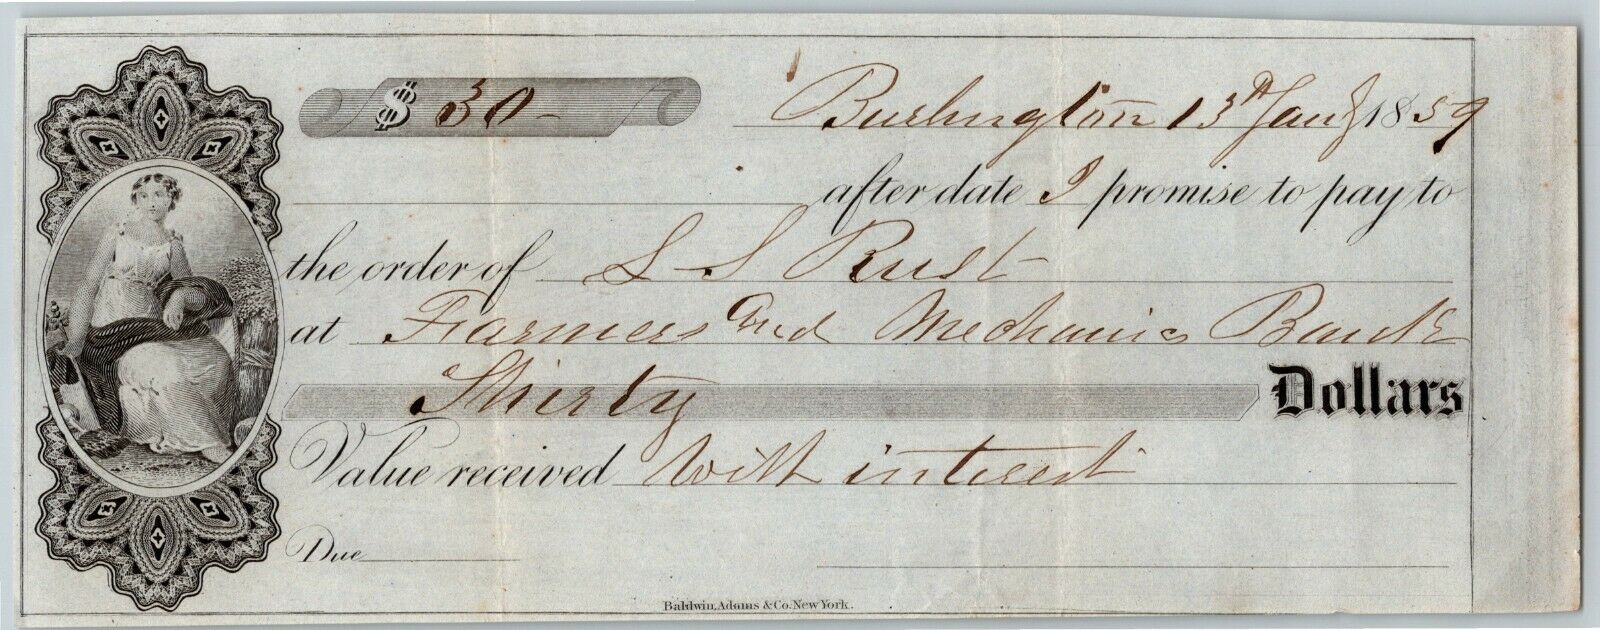 $ 30-
Burlington 13th Jany 1859
after date I promise to pay to
the order of S S Rust
at Farmers and Mechanics Bank
Thirty Dollars
Value received With interest
Due
Baldwin, Adams & Co. New York.